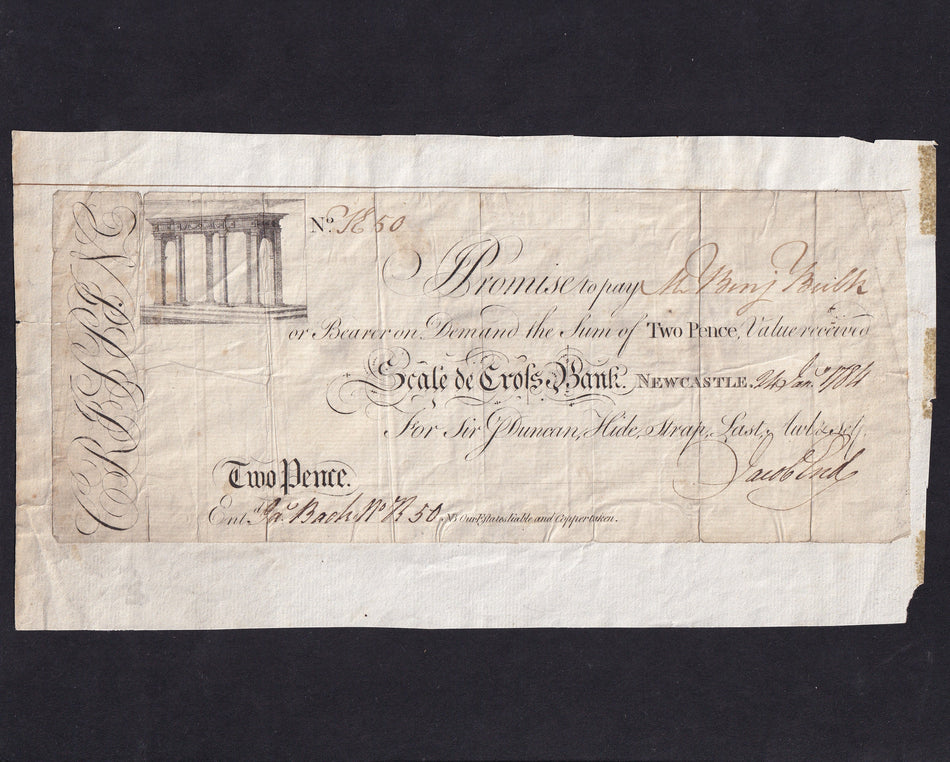 No. R 50
I Promise to pay Mr Benj Bulk
or Bearer on Demand the Sum of Two Pence, Value received
Scale de Croſs Bank. NEWCASTLE. 24 Jany. 1784
For Sir J Duncan, Hide, Strap, Last, & self.
Jacob
Two Pence.
Entd. Jas. Back No R 50 NB Our Estates liable and Copper taken.